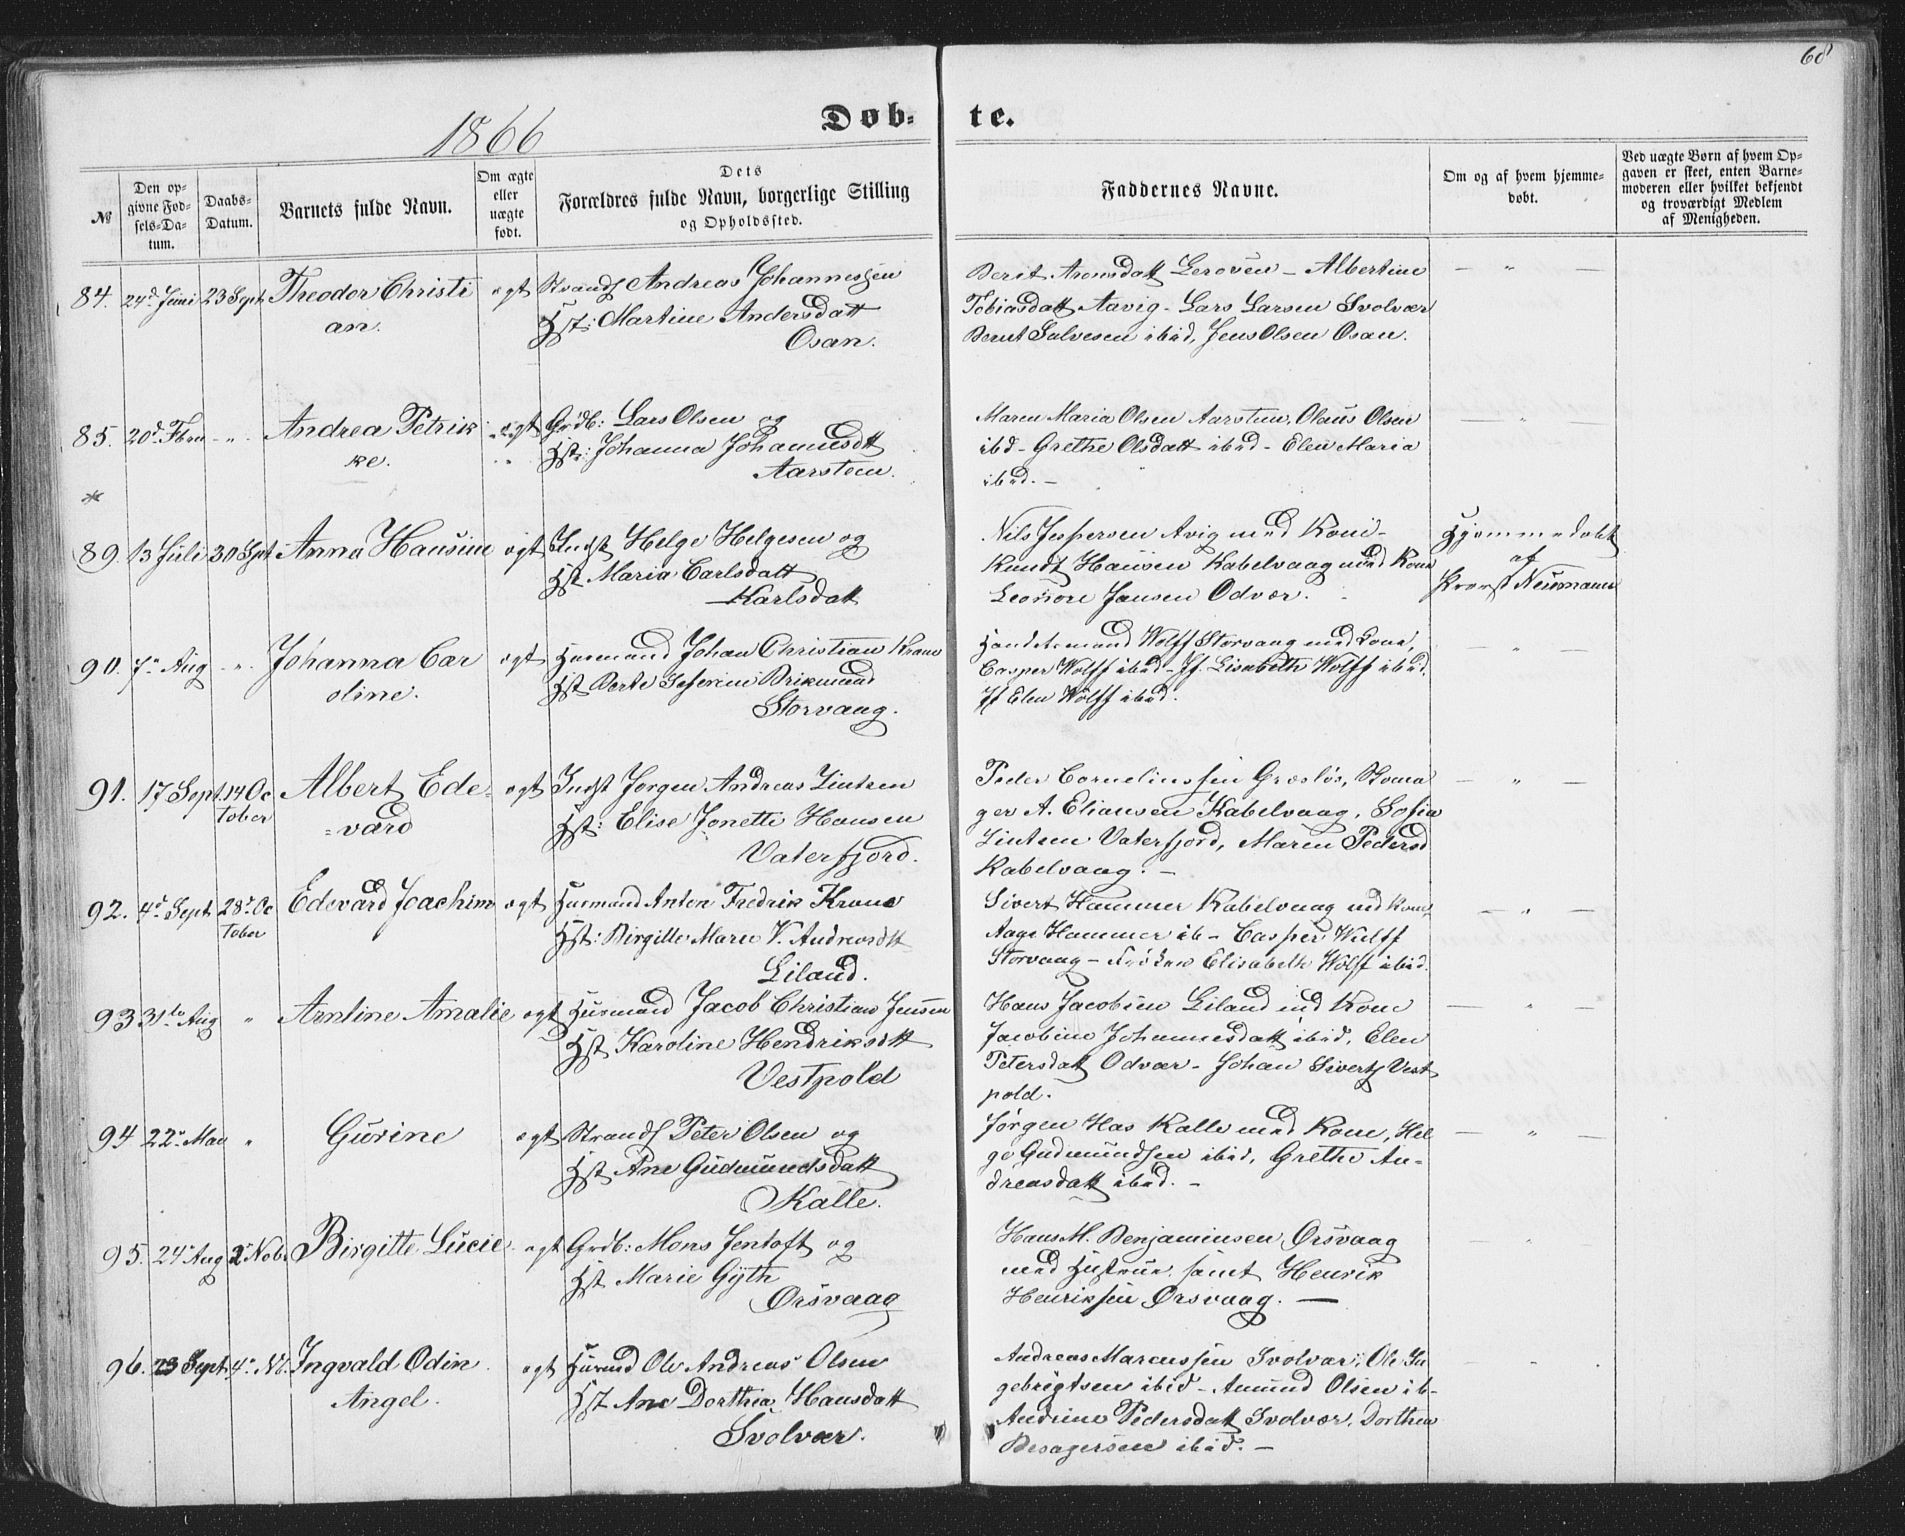 68
1866
Døb-te.
№
Den op-
givne Fød-
sels-Da-
tum.
Daabs-
Datum.
Barnets fulde Navn.
Om ægte
eller
uægte
født.
Dets
Forældres fulde Navn, borgerlige Stilling
og Opholdssted.
Faddernes Navne.
Om og af hvem hjemme-
døbt.
Ved uægte Børn af hvem Op-
gaven er skeet, enten Barne-
moderen eller hvilket bekjendt
og troværdigt Medlem
af Menigheden.
84. 24d. Juni 23 Sept Theodor Christi
an.
ægt Strands Andreas Johannessen
Hst: Martine Andersdatt
Osan.
Berit Aronsdatt Lerosen - Albertine
Tobiasdatt Aavig - Lars Larsen Svolvær
Bernt Salvesen ibid, Jens Olsen Osan.
— " —
85. 20d. Fbru - " - Andrea Petrik
ke.
ægt Grdb: Lars Olsen og
Hst: Johanna Johannesdtt
Aarsteen.
Maren Maria Olsen Aarsteen, Olaus Olsen
ibd - Grethe Olsdatt ibid - Elen Maria
ibid. -
— " —
*
89. 13 Juli 30 Spt Anna Hansine
ægt Indst Helge Helgesen og
Hst Maria Carlsdatt
Karlsdatt
Nils Jespersen Avig med Kone -
Kundt Hansen Kabelvaag med Kone
Leonore Jansen Odvær.
Hjemmedøbt
af
Provst Neumann
90. 7. Aug - " - Johanna Car
oline.
ægt Husmand Johan Christian Krane
Hst Berte Seferine Brikmand
Storvaag.
Handelsmand Wolff Storvaag med Kone,
Casper Wolff ibid - Jf. Lisabeth Wolff ibid.
Jf Elen Wolff ibid.
— " —
91. 17 Sept. 14 Oc
tober
Albert Ede-
=vard
ægt Indst Jørgen Andreas Lintsen
Hst: Elise Jonette Hansen
Vaterfjord.
Peder Corneliussen Græsløs, Skoma
ger A. Eliansen Kabelvaag, Sofia
Lintsen Vaterfjord, Maren Pedersd
Kabelvaag. -
— " —
92. 4d Sept 28d. Oc
tober
Edevard Joachim
ægt Husmand Anton Fredrik Krane
Hst: Birgitte Maren V. Andreasdtt
Liland.
Sivert Hammer Kabelvaag med Kone,
Aage Hammer ib - Casper Wulff
Storvaag - Frøken Elisabeth Wolff ibid.
— " —
93 31te Aug " Arntine Amalie
ægt Husmand Jacob Christian Jensen
Hst Karoline Hendriksdtt
Vestpold
Hans Jacobsen Liland md Kone
Jacobine Johannesdatt ibid, Elen
Petersdatt Odvær - Johan Siverts Vest
pold.
— " —
94 22. Mai " Gurine
ægt Strands Peter Olsen og
Hst Ane Gudmundsdatt
Kalle.
Jørgen Has Kalle med Kone, Hel
ge Gudmundsen ibid, Grethe An-
dreasdatt ibid. -
— " —
95. 24. Aug 2. Nobr Birgitte Lucie
ægt Grdb: Mons Jentoft og
Hst Marie Gyth
Ørsvaag
Hans M. Benjaminsen Ørsvaag
med Hustrue, samt Henrik
Henriksen Ørsvaag. —
96. 23 Sept. 4. Nb. Ingvald Odin
Angel.
ægt Husmd Ole Andreas Olsen
Hst Ane Dorthea Hansdatt
Svolvær.
Andreas Marcussen Svolvær, Ole In
gebrigtsen ibid - Amund Olsen ib-
Andrine Pedersdatt Svolvær, Dorthea
ibid. -